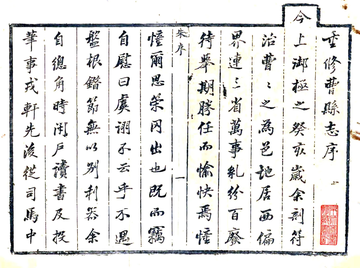 重修曹縣志序
今
上御極之癸亥歲余剖符
治曹曹之為邑地居西偏
界連三省萬事糺紛百廢
待舉期勝任而愉快焉憧
憧爾思縈罔出也既而竊
朱序
一
自慰曰虞詡不云乎不遇
盤根錯節無以別利器余
自總角時閉戶讀書及投
筆事戎軒先後從司馬中